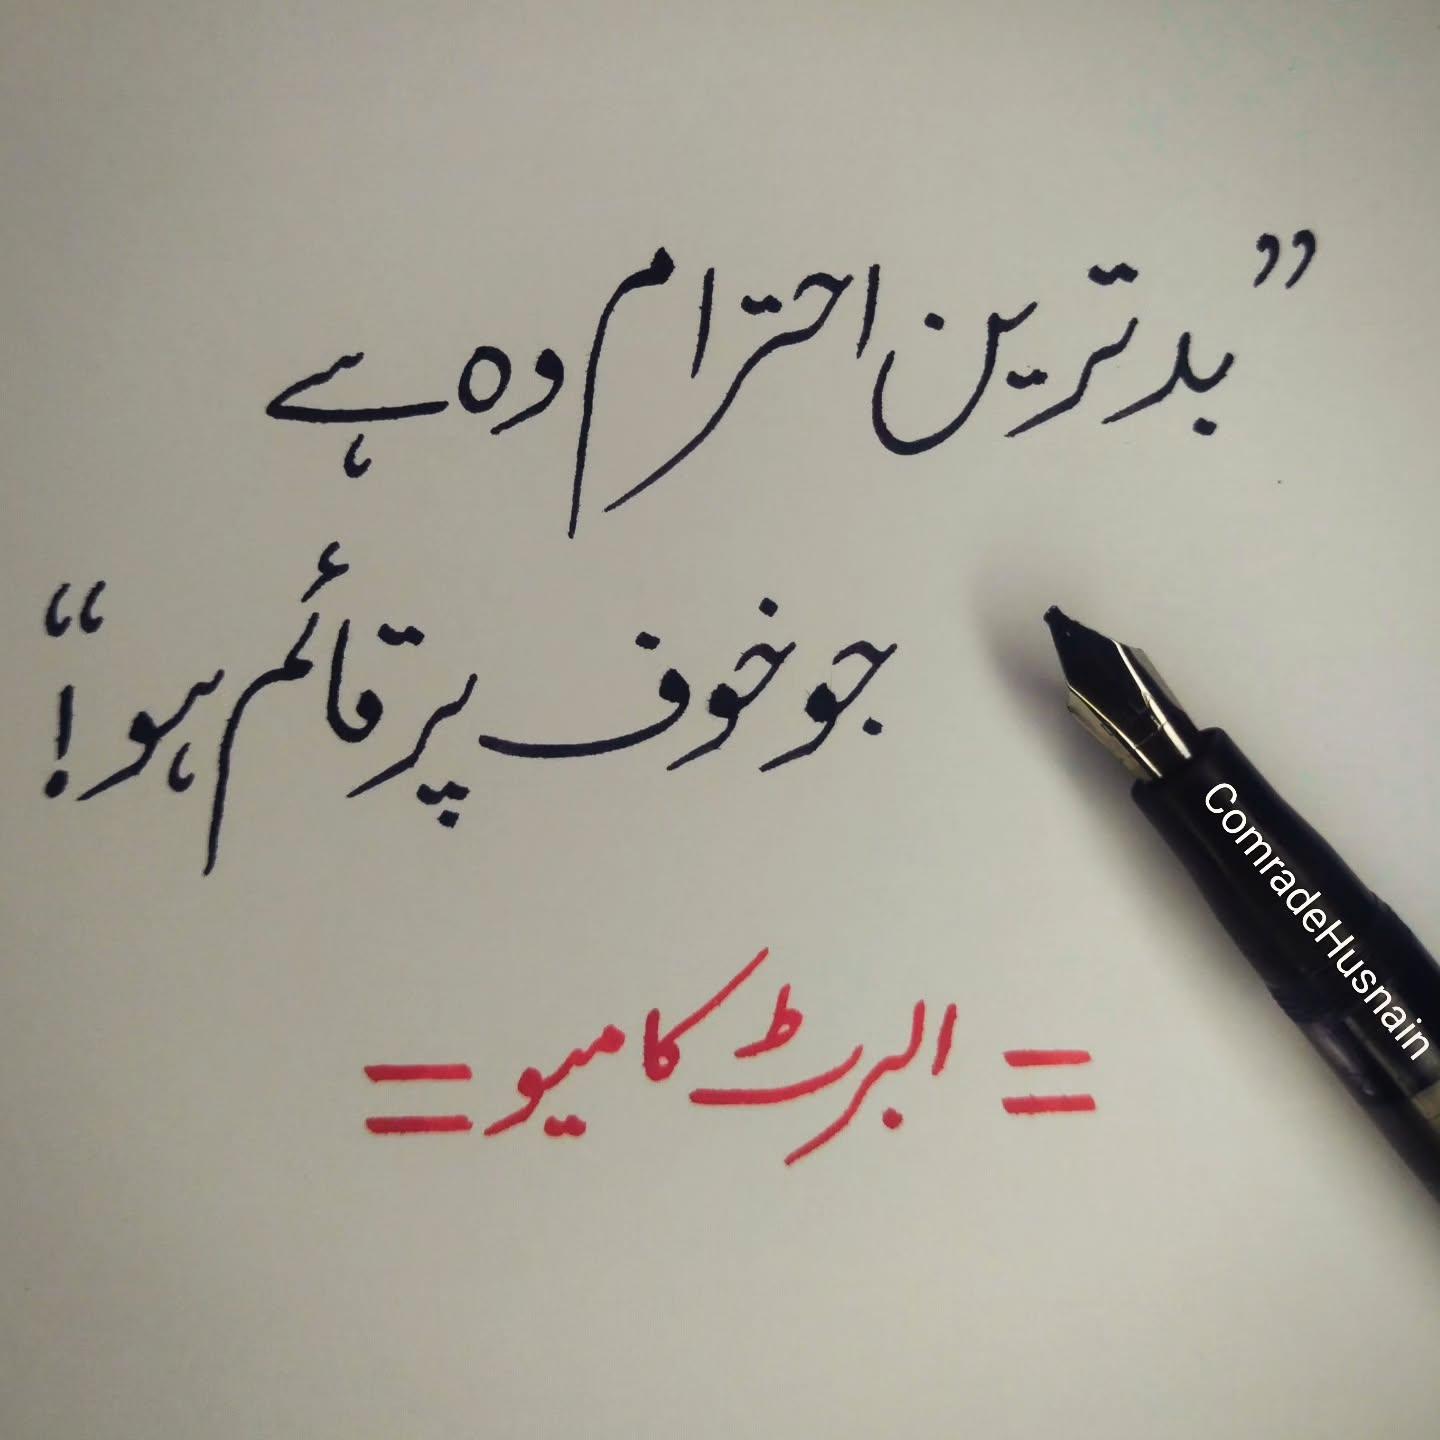 ”بدترین احترام وہ ہے
جو خوف پر قائم ہو!“
= البرٹ کامیو =
ComradeHusnain